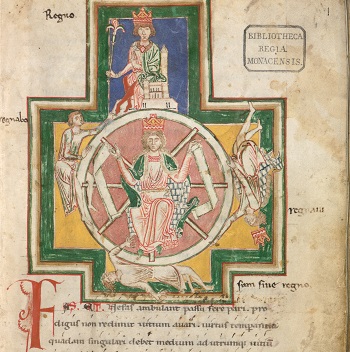 Regno.
1
BIBLIOTHECA
REGIA
MONACENSIS.
regnabo
regnaui
sum sine regno.
FAS ET Nefas ambulant passu fere pari. pro
digus non redimit uitium auari. uirtus temperantia
quadam singulari debet medium ad utrumque uitium